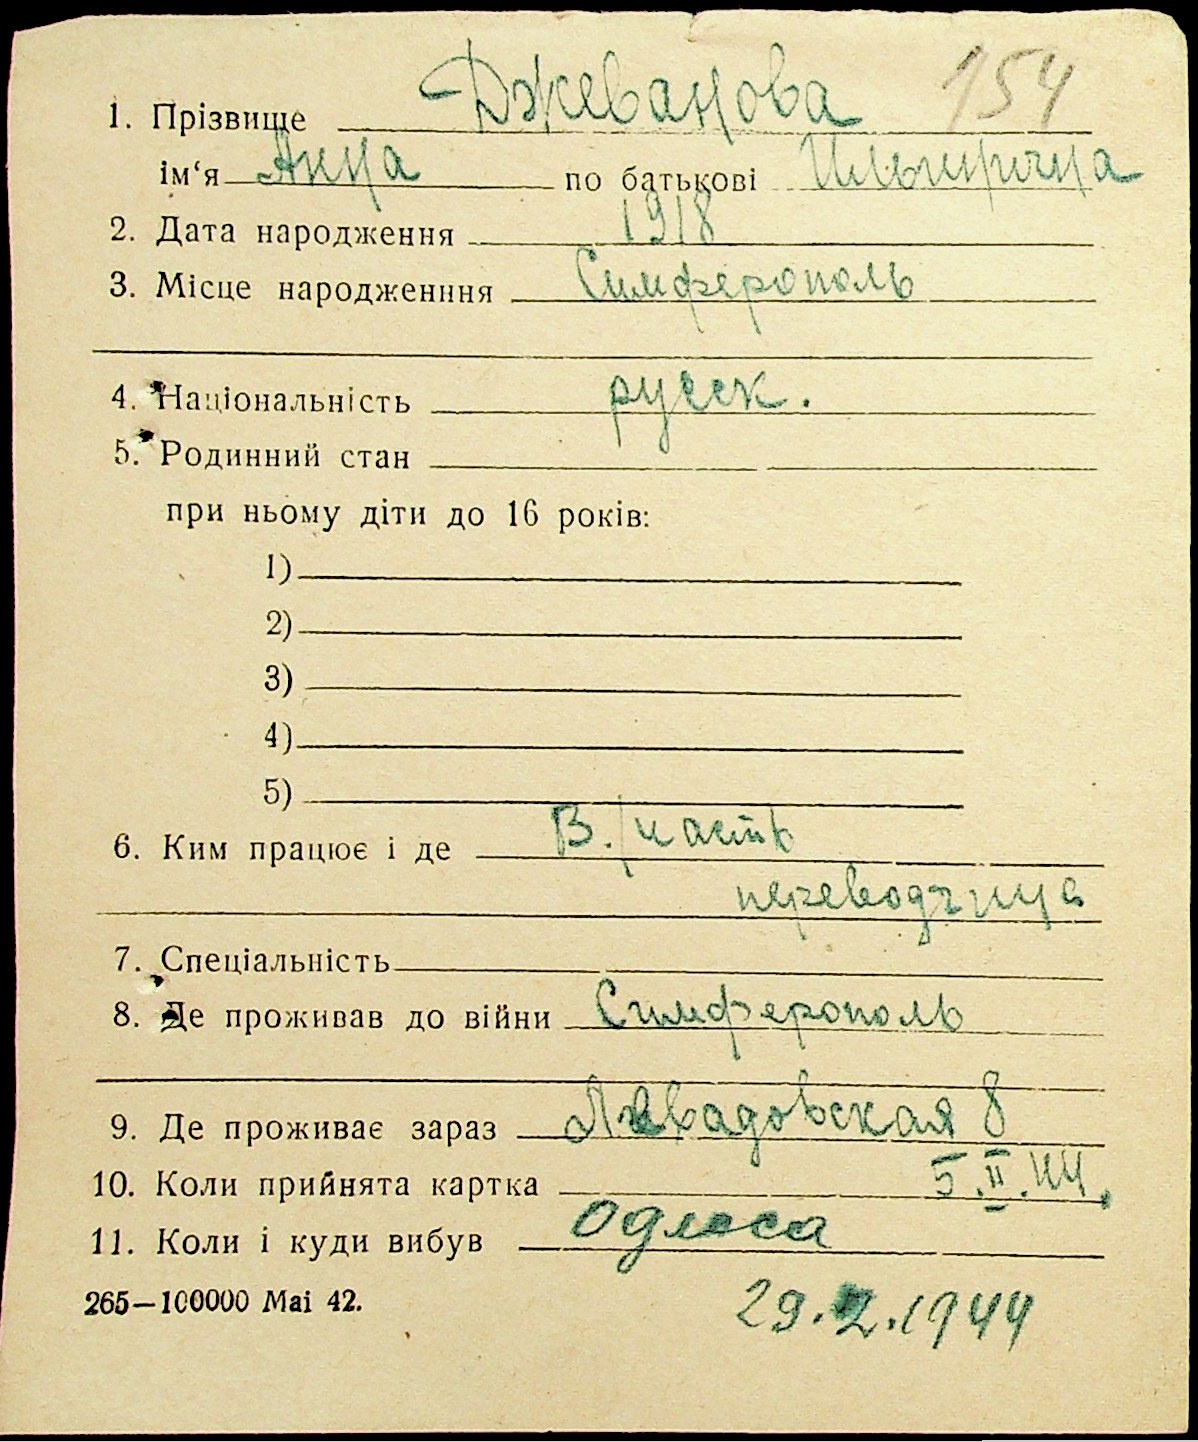 154
1. Прізвище Джеванова
ім‘я Анна по батькові
2. Дата народження 1918
3. Місце народженння Симферополь
4. Національність русск.
5. Родинний стан
при ньому діти до 16 років:
1)
2)
3)
4)
5)
6. Ким працює і де В./часть
переводчица
7. Спеціальність
8. Де проживав до війни Симферополь
9. Де проживає зараз 8
10. Коли прийнята картка 5.II.44.
11. Коли і куди вибув Одесса
265—100000 Mai 42.
29.2.1944